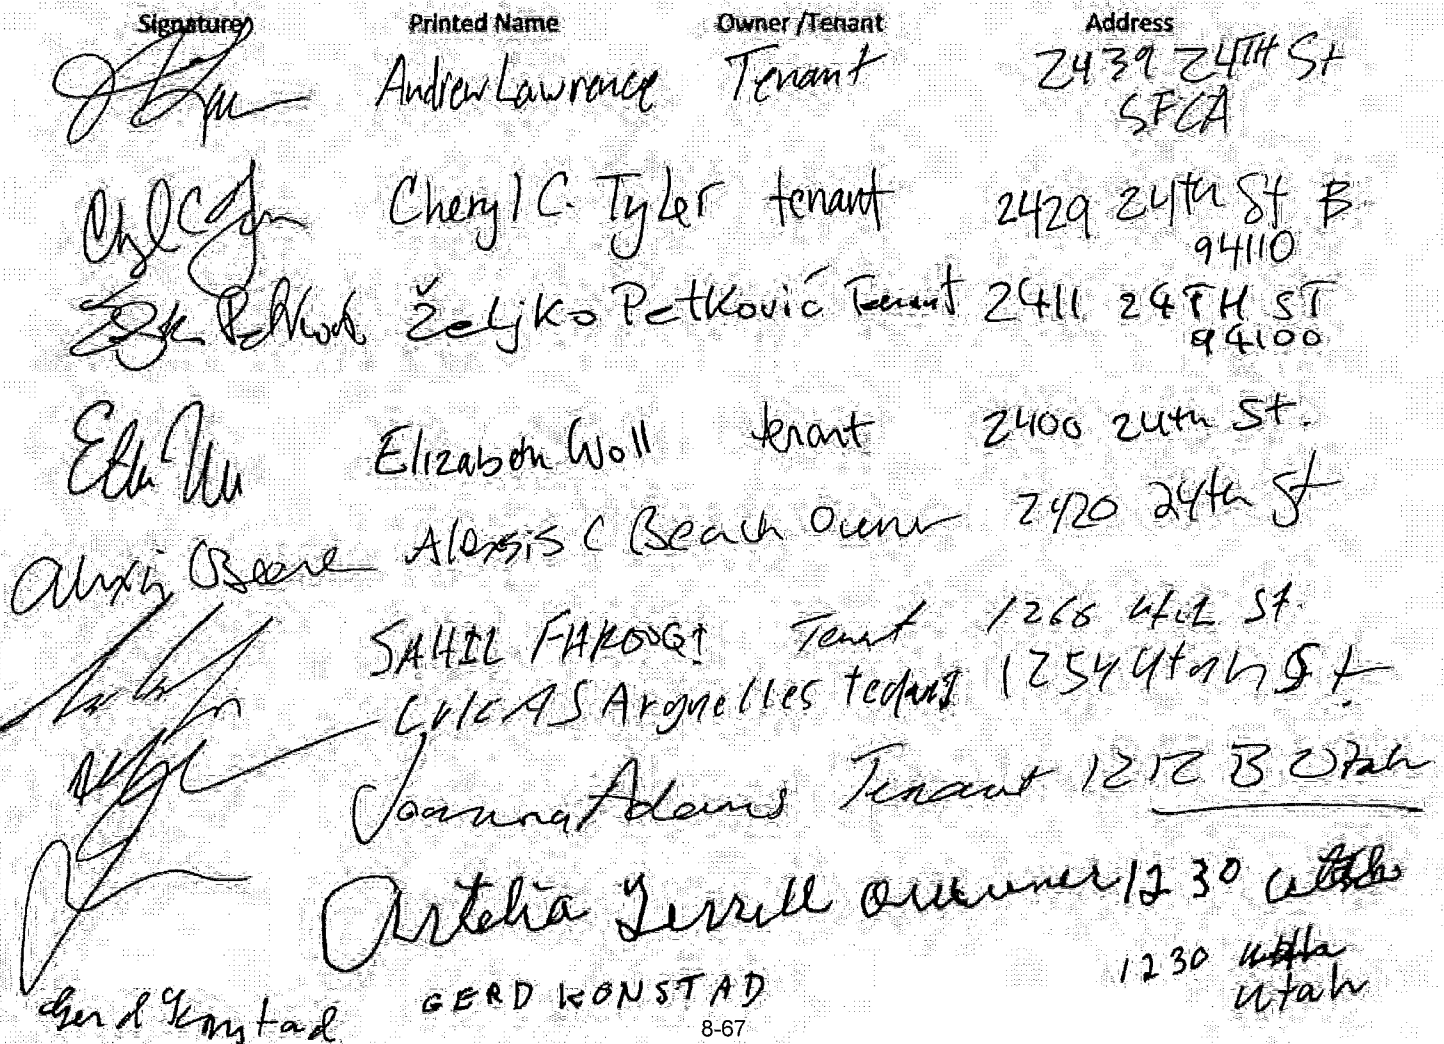 Signature Printed Name Owner /Tenant Address
Andrew Lawrence Tenant 2439 24TH St
SFCA
Cheryl C. Tyler tenant 2429 24th St B
94110
Željko Petković Tenant 2411 24TH ST
94100
Elizabeth Woll tenant 2400 24th St.
Alexis C Beach Owner 2420 24th St
SAHIL FAROOQI Tenant 1266 Utah St.
LUKAS Arguelles tenant 1254 Utah St.
Joanna Adams Tenant 1212 B Utah
Artelia Terrell owner 1230
1230
Utah
Gerd Konstad GERD KONSTAD
8-67